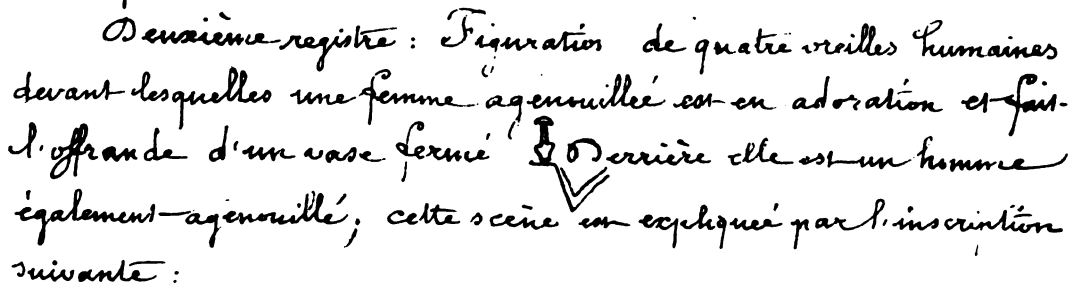 Deuxième registre : Figuration de quatre oreilles humaines
devant lesquelles une femme agenouillée est en adoration et fait
l'offrande d'un vase fermé Derrière elle est un homme
également agenouillé ; cette scène est expliquée par l'inscription
suivante :